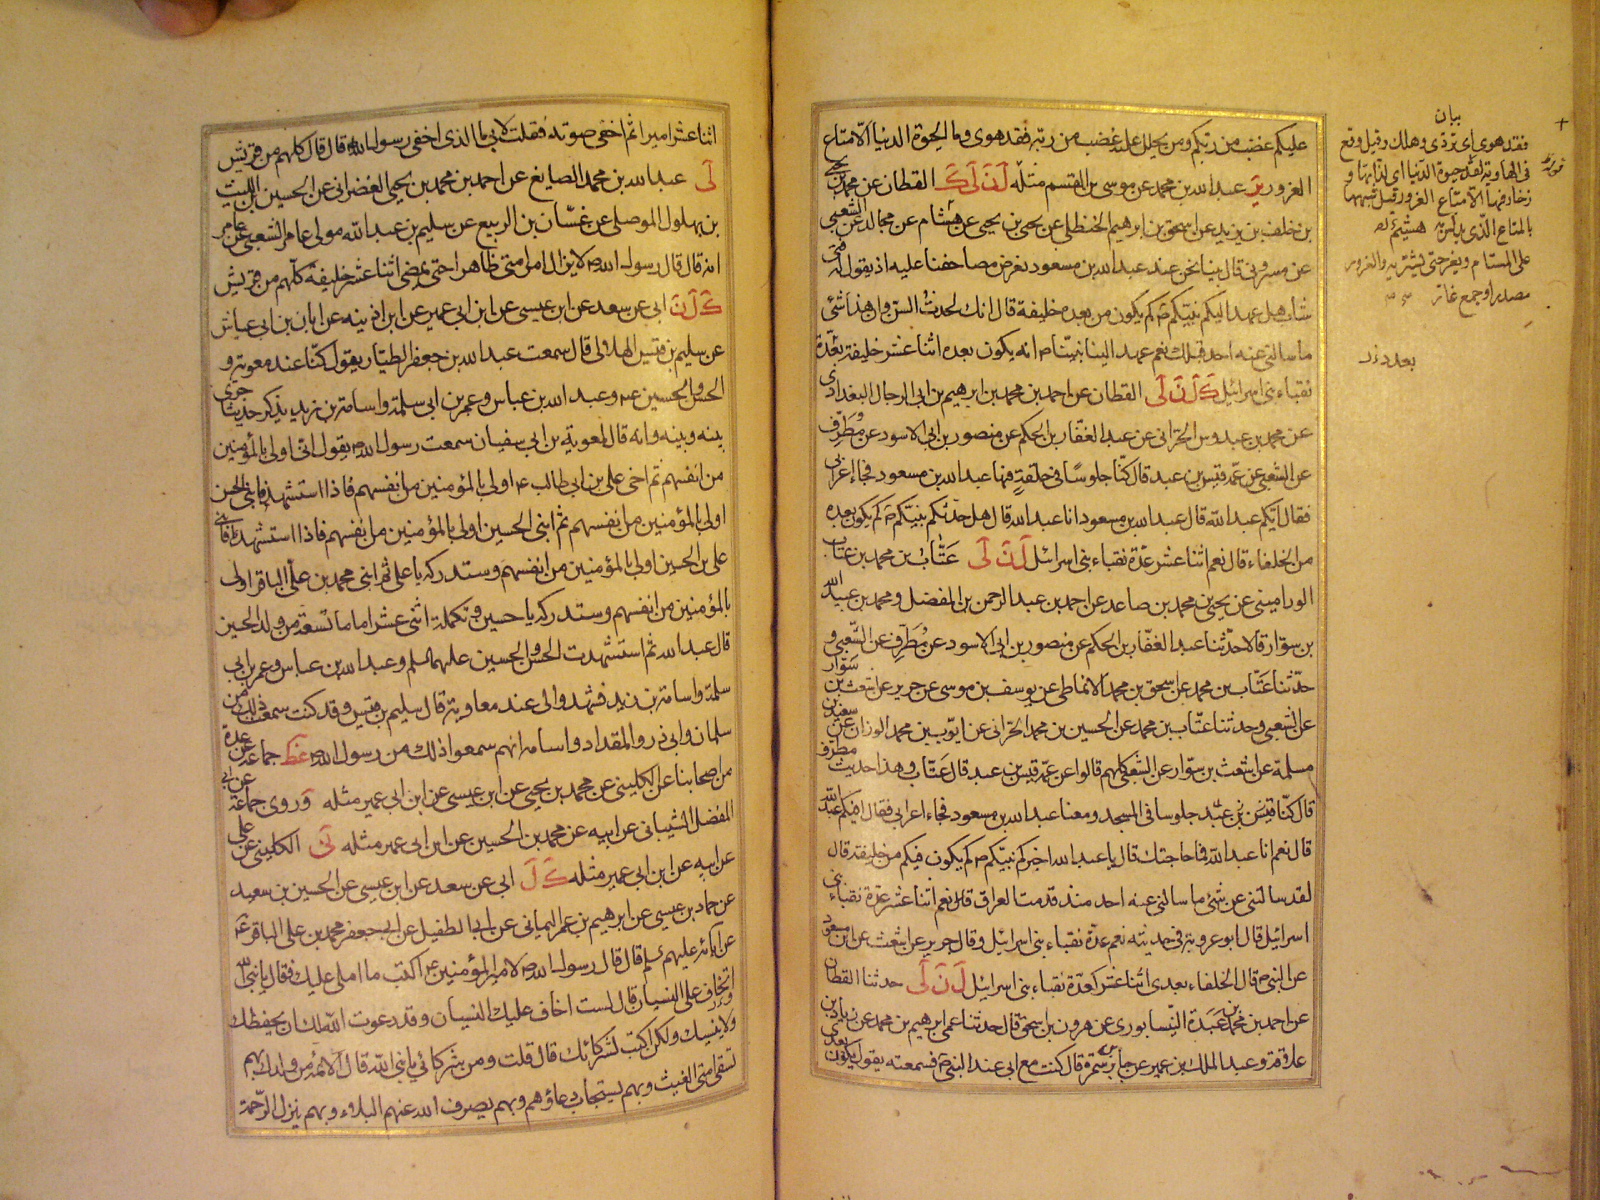 عليكم غضب من ربكم ومن يحلل عليه غضب من ربه فقد هوى وما الحيوة الدنيا الا متاع
الغرور عبد الله بن محمد عن موسى بن القسم مثله القطان عن محمد بن يحيى
بن خلف بن يزيد عن اسحق بن ابرهيم الحنظلى عن يحيى بن يحيى عن هشام عن مجالد عن الشعبي
عن مسروق قال بينا نحن عند عبد الله بن مسعود نعرض مصاحفنا عليه اذ يقول له فتى
شاب هل عهد اليكم نبيكم ص كم يكون من بعده خليفة قال انك لحدث السن وان هذا شئ
ما سالنى عنه احد قبلك نعم عهد الينا نبينا ص انه يكون بعده اثنا عشر خليفة بعدة
نقباء بنى اسرائيل ك ل ن لى القطان عن احمد بن محمد بن ابرهيم بن ابى الرجال البغدادى
عن محمد بن عبدوس الحرانى عن عبد الغفار بن الحكم عن منصور بن ابى الاسود عن مطرف
عن الشعبي عن عمه قيس بن عبد قال كنا جلوسا فى حلقة فيها عبد الله بن مسعود فجاء اعرابى
فقال ايكم عبد الله قال عبد الله بن مسعود انا عبد الله قال هل حدثكم نبيكم ص كم يكون بعده
من الخلفاء قال نعم اثنا عشر عدة نقباء بنى اسرائيل ل ن لى عتاب بن محمد بن عتاب
الورامينى عن يحيى بن محمد بن صاعد عن احمد بن عبد الرحمن بن المفضل ومحمد بن عبيد الله
بن سوار قالا حدثنا عبد الغفار بن الحكم عن منصور بن ابى الاسود عن مطرف عن الشعبي و
حدثنا عتاب بن محمد عن اسحق بن محمد الانماطى عن يوسف بن موسى عن جرير عن اشعث بن سوار
عن الشعبي وحدثنا عتاب بن محمد عن الحسين بن محمد الحرانى عن ايوب بن محمد الوزان عن سعيد بن
مسلمة عن اشعث بن سوار عن الشعبي كلهم قالوا عن عمه قيس بن عبد قال عتاب وهذا حديث مطرف
قال كنا جلوسا فى المسجد ومعنا عبد الله بن مسعود فجاء اعرابى فقال افيكم عبد الله
قال نعم انا عبد الله فما حاجتك قال يا عبد الله اخبركم نبيكم ص كم يكون فيكم من خليفة قال
لقد سالتنى عن شئ ما سالنى عنه احد منذ قدمت العراق قال نعم اثنا عشر عدة نقباء بنى
اسرائيل قال ابو عروبة فى حديثه نعم عدة نقباء بنى اسرائيل وقال جرير عن اشعث عن ابن مسعود
عن النبى ص قال الخلفاء بعدى اثنا عشر كعدة نقباء بنى اسرائيل ل ن لى حدثنا القطان
عن احمد بن محمد بن عبدة النيسابورى عن هرون بن اسحق قال حدثنا عمى ابرهيم بن محمد عن زياد بن
علاقة وعبد الملك بن عمير عن جابر بن سمرة قال كنت مع ابى عند النبى ص فسمعته يقول يكون بعدى
بيان
فقد هوى اى تردى وهلك وقيل وقع
فى الهاوية حيوة الدنيا اى لذاتها و
زخارفها الا متاع الغرور قيل شبهها
بالمتاع الذى يدلس به
على المستام ويغر حتى يشتريه والغرور
مصدر او جمع غار
اثنا عشر اميرا ثم اخفى صوته فقلت لابى ما الذى اخفى رسول الله قال قال كلهم من قريش
لى عبد الله بن محمد الصايغ عن احمد بن محمد بن يحيى عن الحسين بن الليث
بن بهلول الموصلى عن غسان بن الربيع عن سليم بن عبد الله مولى عامر الشعبي عن عامر
انه قال قال رسول الله ص لا يزال امر امتى ظاهرا حتى يمضى اثنا عشر خليفة كلهم من قريش
ك ل ن ابى عن سعد عن ابن عيسى عن ابن ابى عمير عن ابن اذينه عن ابان بن ابى عياش
عن سليم بن قيس الهلالى قال سمعت عبد الله بن جعفر الطيار يقول كنا عند معوية و
الحسن والحسين ع وعبد الله بن عباس وعمر بن ابى سلمة واسامة بن زيد يذكر حديثا جرى
بينه وبينه وانه قال لمعوية بن ابى سفيان سمعت رسول الله ص يقول انى اولى بالمؤمنين
من انفسهم ثم اخى على بن ابى طالب ع اولى بالمؤمنين من انفسهم فاذا استشهد فابنى الحسن
اولى بالمؤمنين من انفسهم ثم ابنى الحسين اولى بالمؤمنين من انفسهم فاذا استشهد فابنه
على بن الحسين اولى بالمؤمنين من انفسهم وستدركه يا على ثم ابنى محمد بن على الباقر اولى
بالمؤمنين من انفسهم وستدركه يا حسين وتكملة اثنى عشر اماما تسعة من ولد الحسين
قال عبد الله ثم استشهدت الحسن والحسين عليهما السلم وعبد الله بن عباس وعمر بن ابى
سلمة واسامة بن زيد فشهدوا لى عند معاوية قال سليم بن قيس وقد كنت سمعت ذلك من
سلمان وابى ذر والمقداد واسامة انهم سمعوا ذلك من رسول الله ص غط جماعة عن عدة
من اصحابنا عن الكلينى عن محمد بن يحيى عن ابن عيسى عن ابن ابى عمير مثله وروى جماعة عن ابى
المفضل الشيبانى عن ابيه عن محمد بن الحسين عن ابن ابى عمير مثله نى الكلينى عن على
عن ابيه عن ابن ابى عمير مثله ك ل ابى عن سعد عن ابن عيسى عن الحسين بن سعيد
عن حماد بن عيسى عن ابرهيم بن عمر اليمانى عن ابى الطفيل عن ابى جعفر محمد بن على الباقر ع
عن آبائه عليهم السلم قال قال رسول الله ص لامير المؤمنين ع اكتب ما املى عليك فقال يا نبى الله
اتخاف على النسيان قال لست اخاف عليك النسيان وقد دعوت الله لك ان يحفظك
ولا ينسيك ولكن اكتب لشركائك قال قلت ومن شركائى يا نبى الله قال الائمة من ولدك بهم
تسقى امتى الغيث وبهم يستجاب دعاؤهم وبهم يصرف الله عنهم البلاء وبهم ينزل الرحمة